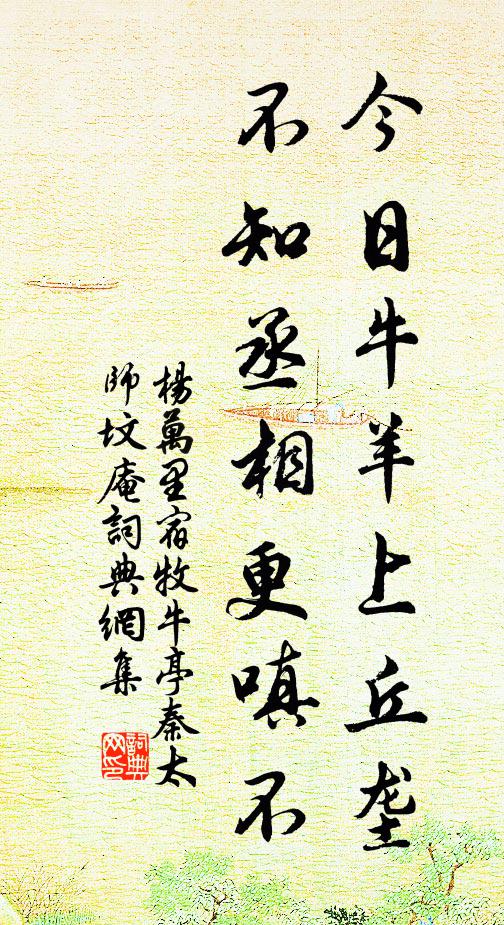 今日牛羊上丘垄
不知丞相更嗔不
楊萬里宿牧牛亭秦太
師坟庵詞典網集
詞典
网印